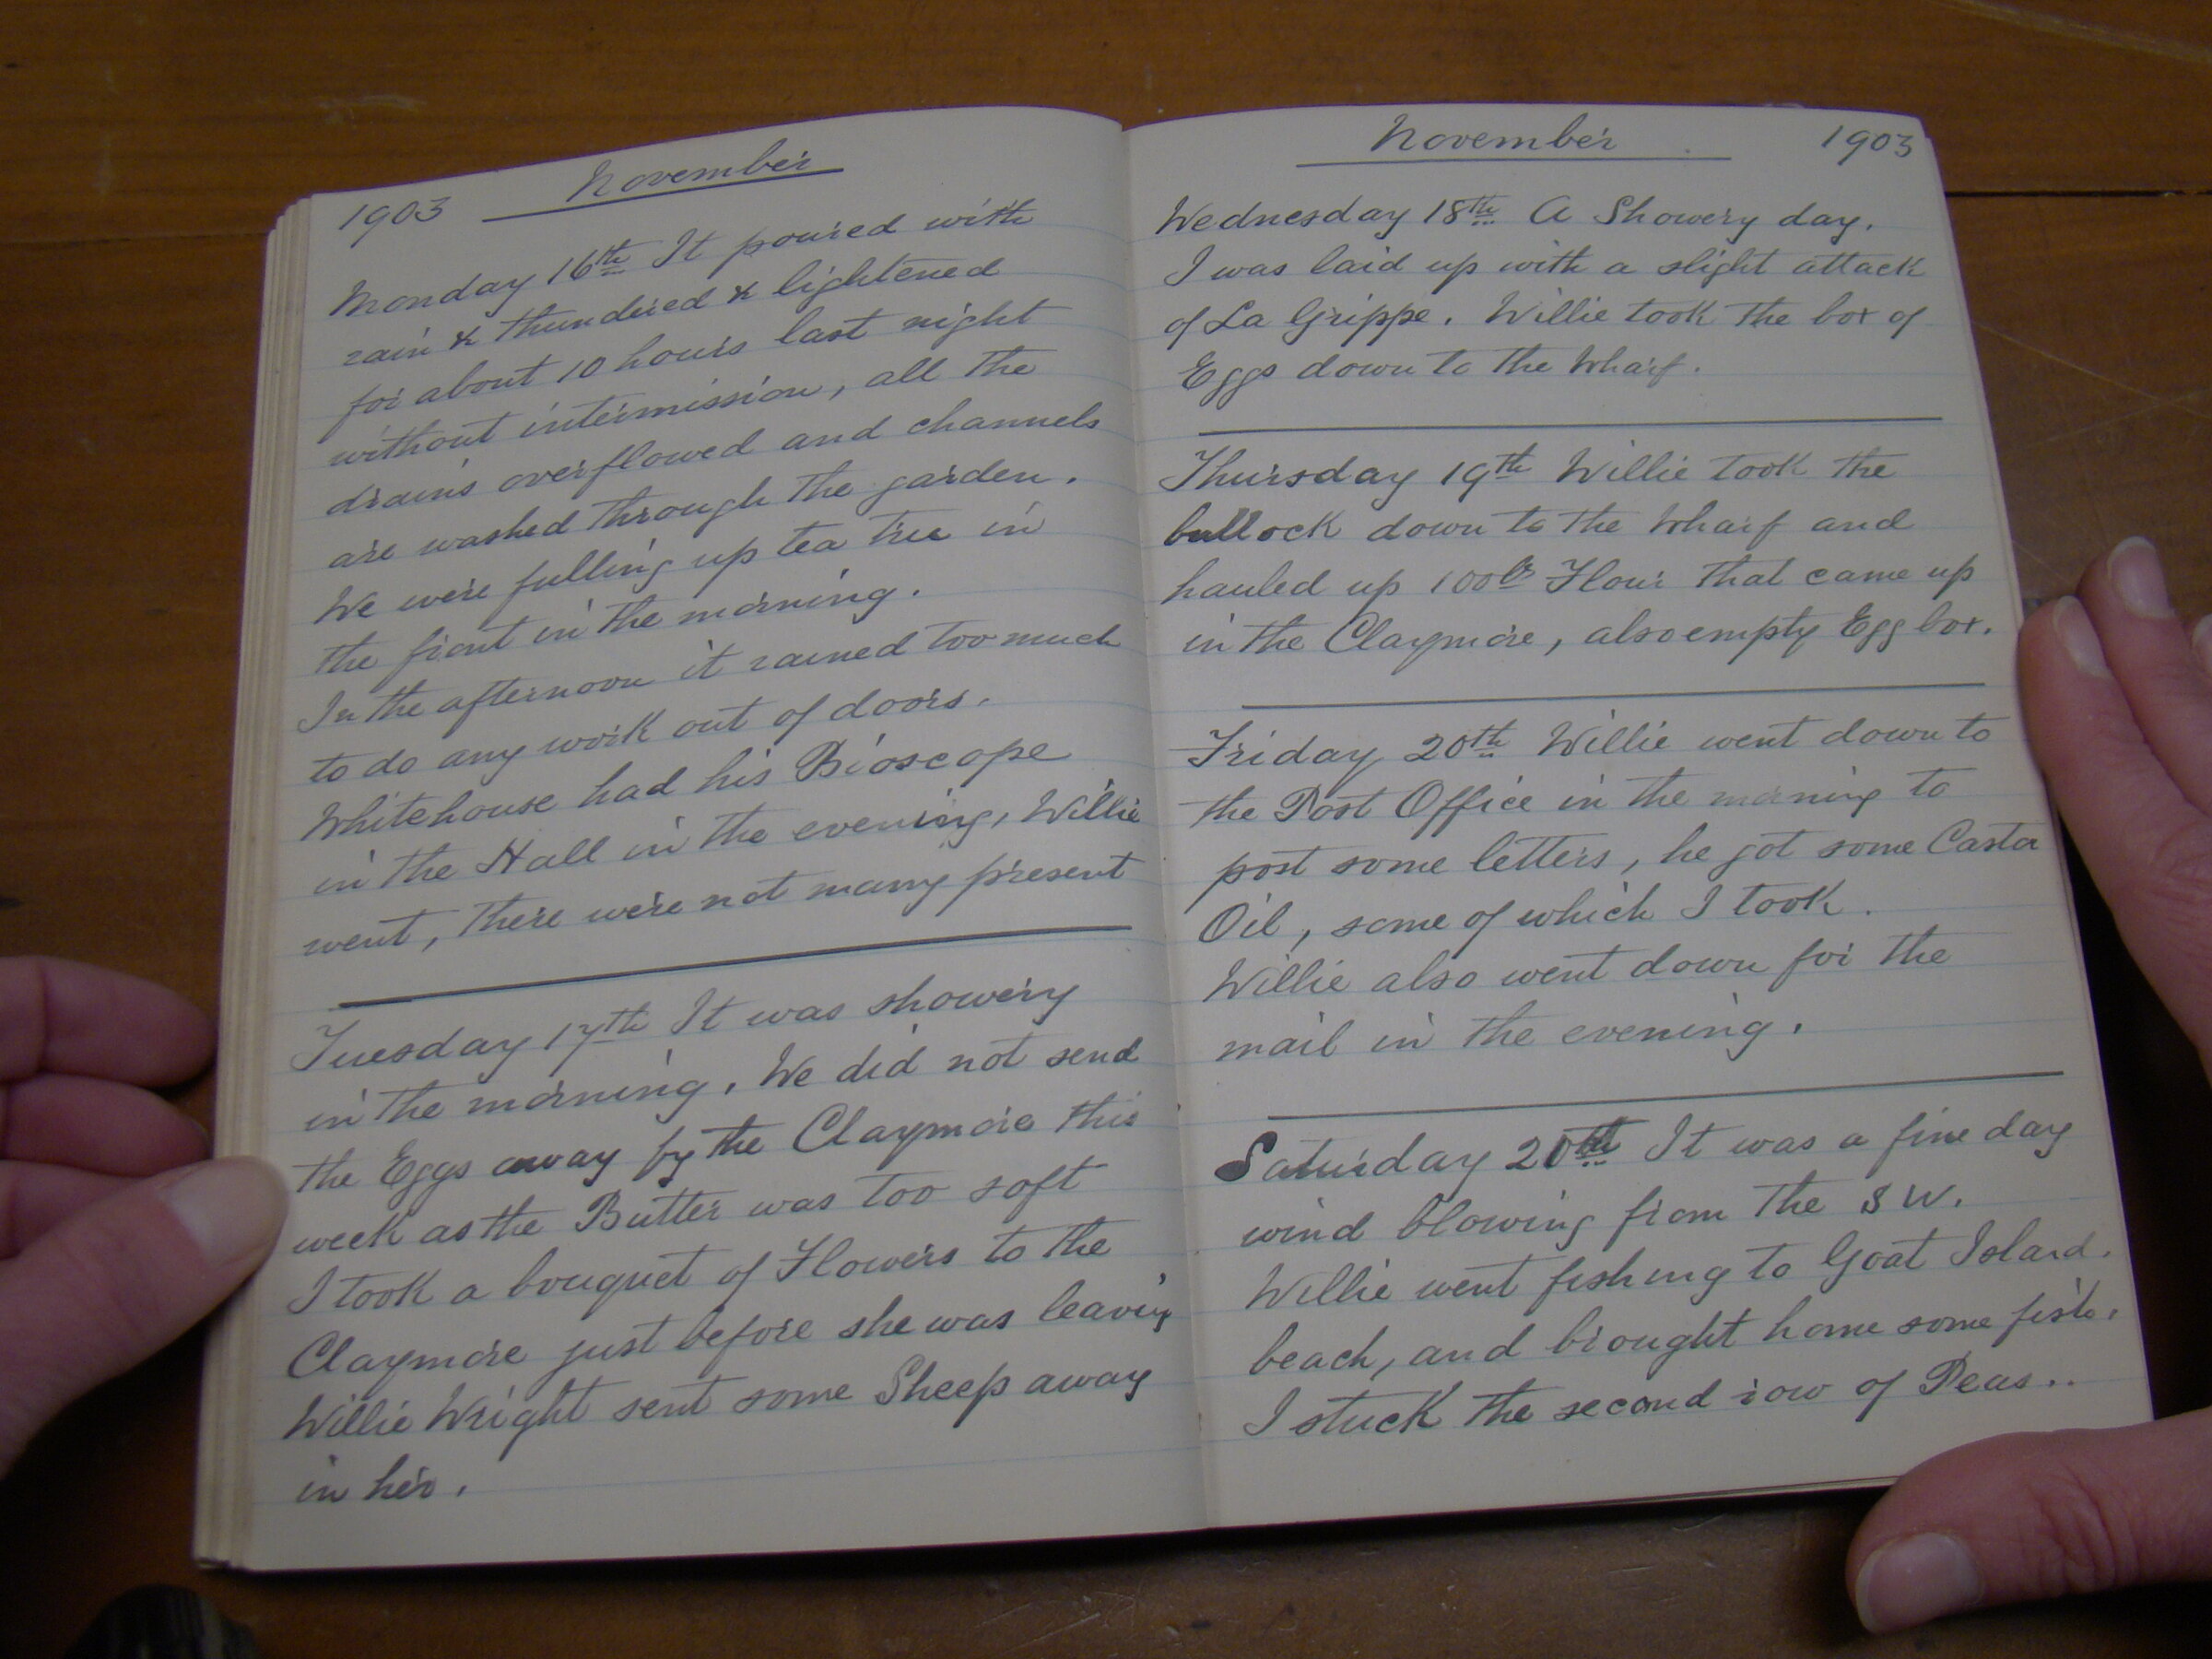 1903 November
Monday 16th It poured with
rain & thundered & lightened
for about 10 hours last night
without intermission, all the
drains overflowed and channels
are washed through the garden.
We were pulling up tea tree in
the front in the morning.
In the afternoon it rained too much
to do any work out of doors.
Whitehouse had his Bioscope
in the Hall in the evening, Willie
went, there were not many present
Tuesday 17th It was showery
in the morning. We did not send
the Eggs away by the Claymore this
week as the Butter was too soft
I took a bouquet of Flowers to the
Claymore just before she was leaving
Willie Wright sent some Sheep away
in her.
November 1903
Wednesday 18th A Showery day.
I was laid up with a slight attack
of La Grippe. Willie took the box of
Eggs down to the Wharf.
Thursday 19th Willie took the
bullock down to the Wharf and
hauled up 100lb Flour that came up
in the Claymore, also empty Egg box.
Friday 20th Willie went down to
the Post Office in the morning to
post some letters, he got some Castor
Oil, some of which I took.
Willie also went down for the
mail in the evening.
Saturday It was a fine day
wind blowing from the S W.
Willie went fishing to Goat Island.
beach, and brought home some fish.
I stuck the second row of Peas..